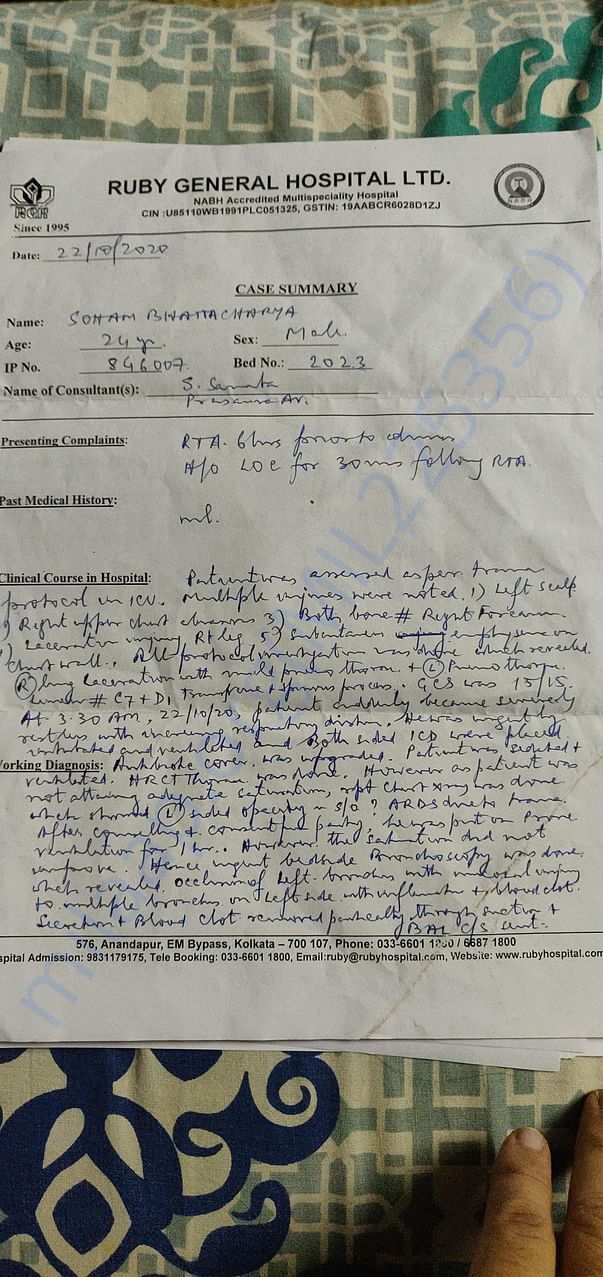 RUBY GENERAL HOSPITAL LTD.
NABH Accredited Multispeciality Hospital
CIN :U85110WB1991PLC051325, GSTIN: 19AABCR6028D1ZJ
RGH
Since 1995
NABH
Date: 22/10/2020
CASE SUMMARY
Name: SOHAM BHATTACHARYA
Age: 24 yr. Sex: Male.
IP No. 846007. Bed No.: 2023
Name of Consultant(s): S.
Presenting Complaints: RTA. 6hrs prior to
H/o LOC for 30 following RTA.
Past Medical History:
nil.
Clinical Course in Hospital: Patient was assessed as per trauma
protocol in ICU. Multiple injuries were noted. 1) Left scalp
Right upper chest abrasions 3) Both bone # Right Forearm
Laceration injury, Rt leg 5) Subcutaneous emphysema on
chest wall. All protocol investigation was done which revealed.
(R) lung laceration with mild pneumo thorax + (L) Pneumo thorax.
# C7 + D1 transverse + spinous process. GCS was 15/15.
At 3.30 AM, 22/10/20, patient suddenly became severely
restless with increasing respiratory distress. He was urgently
intubated and ventilated and Both sided ICD were placed.
Working Diagnosis: Antibiotic cover was upgraded. Patient was sedated +
ventilated. HRCT Thorax was done. However as patient was
not attaining adequate saturation, rpt chest xray was done
which showed (L) sided opacity - s/o ? ARDS due to trauma.
After counselling + consent from party, he was put on Prone
ventilation for 1 hr.. However the saturation did not
improve. Hence urgent bedside Bronchoscopy was done.
which revealed occlusion of left bronchus with mucosal injury
to multiple bronchus on left side with + blood clot.
Secretion + Blood clot removed partially through suction +
BAL c/s sent.
576, Anandapur, EM Bypass, Kolkata – 700 107, Phone: 033-6601 1800 / 6687 1800
spital Admission: 9831179175, Tele Booking: 033-6601 1800, Email:ruby@rubyhospital.com, Website: www.rubyhospital.com